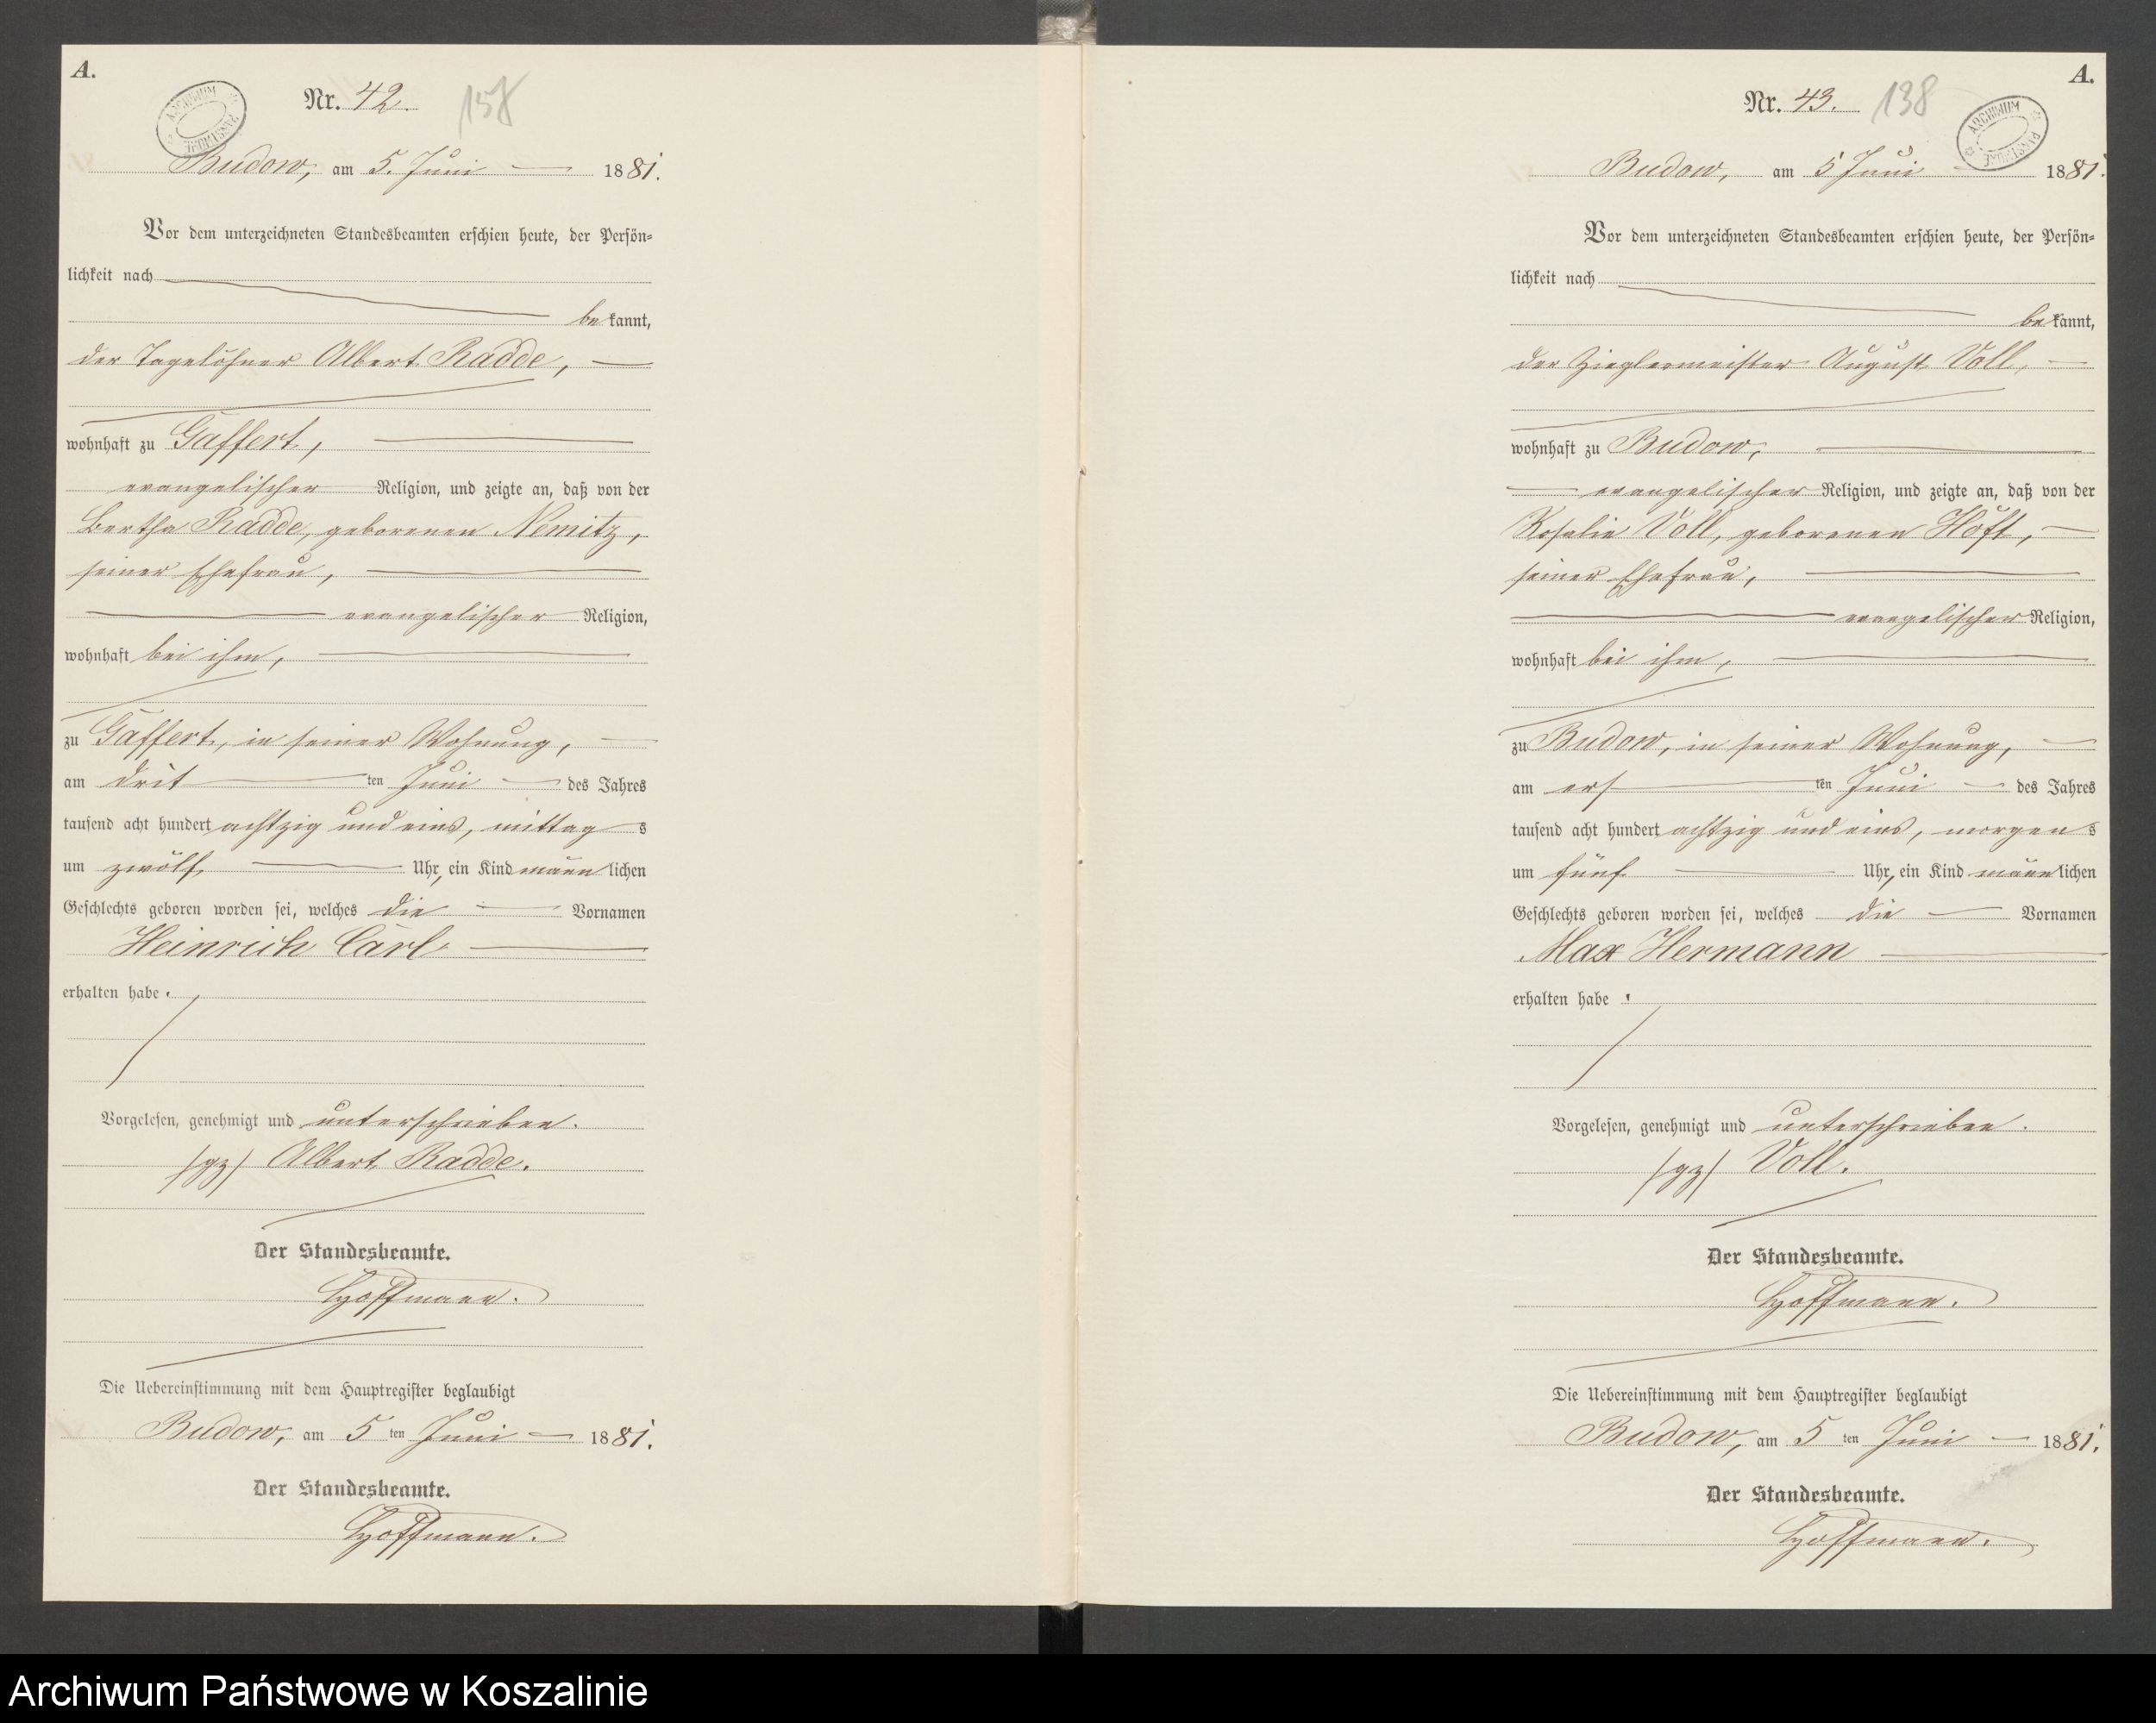 A.
ARCHIWUM PAŃSTWOWE
Nr. 42. 158
Budow, am 5. Juni 1881.
Vor dem unterzeichneten Standesbeamten erschien heute, der Persön-
lichkeit nach
be kannt,
der Tagelöhner Albert Radde,
wohnhaft zu Gaffert,
evangelischer Religion, und zeigte an, daß von der
Bertha Radde, geborenen Nemitz,
seiner Ehefrau,
evangelischer Religion,
wohnhaft bei ihm,
zu Gaffert, in seiner Wohnung,
am drit ten Juni des Jahres
tausend acht hundert achtzig und eins, mittag s
um zwölf Uhr, ein Kind männ lichen
Geschlechts geboren worden sei, welches die Vornamen
Heinrich Carl
erhalten habe.
Vorgelesen, genehmigt und unterschrieben.
/gz/ Albert Radde.
Der Standesbeamte.
Hoffmann.
Die Uebereinstimmung mit dem Hauptregister beglaubigt
Budow, am 5 ten Juni 1881.
Der Standesbeamte.
Hoffmann.
A.
ARCHIWUM PAŃSTWOWE
Nr. 43. 138
Budow, am 5 Juni 1881.
Vor dem unterzeichneten Standesbeamten erschien heute, der Persön-
lichkeit nach
be kannt,
der Zieglermeister August Voll,
wohnhaft zu Budow,
evangelischer Religion, und zeigte an, daß von der
Rosalie Voll, geborenen Höft,
seiner Ehefrau,
evangelischer Religion,
wohnhaft bei ihm,
zu Budow, in seiner Wohnung,
am ers ten Juni des Jahres
tausend acht hundert achtzig und eins, morgen s
um fünf Uhr, ein Kind männ lichen
Geschlechts geboren worden sei, welches die Vornamen
Max Hermann
erhalten habe.
Vorgelesen, genehmigt und unterschrieben.
/gz/ Voll.
Der Standesbeamte.
Hoffmann.
Die Uebereinstimmung mit dem Hauptregister beglaubigt
Budow, am 5 ten Juni 1881.
Der Standesbeamte.
Hoffmann.
Archiwum Państwowe w Koszalinie